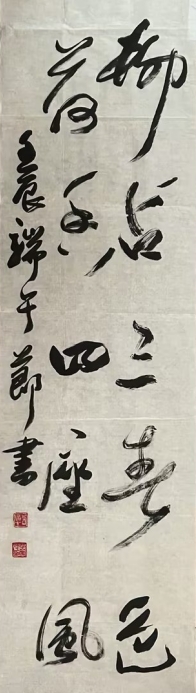 柳沾三春色
荷香四座風
壬辰端午節書